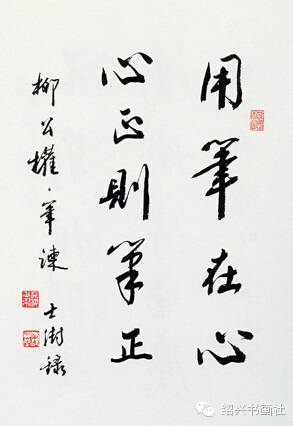 用筆在心
心正則筆正
柳公權·筆諫 士澍録
绍兴书画社